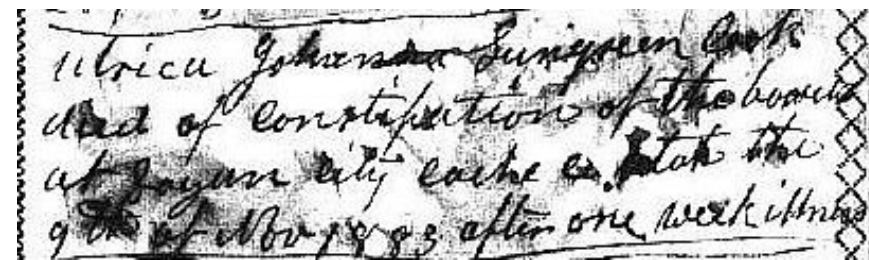 Ulrica Johanna Lungreen Cook
died of Constipation of the bowels
at Logan City Cache Co. Utah the
9th of Nov 1883 after one week illness